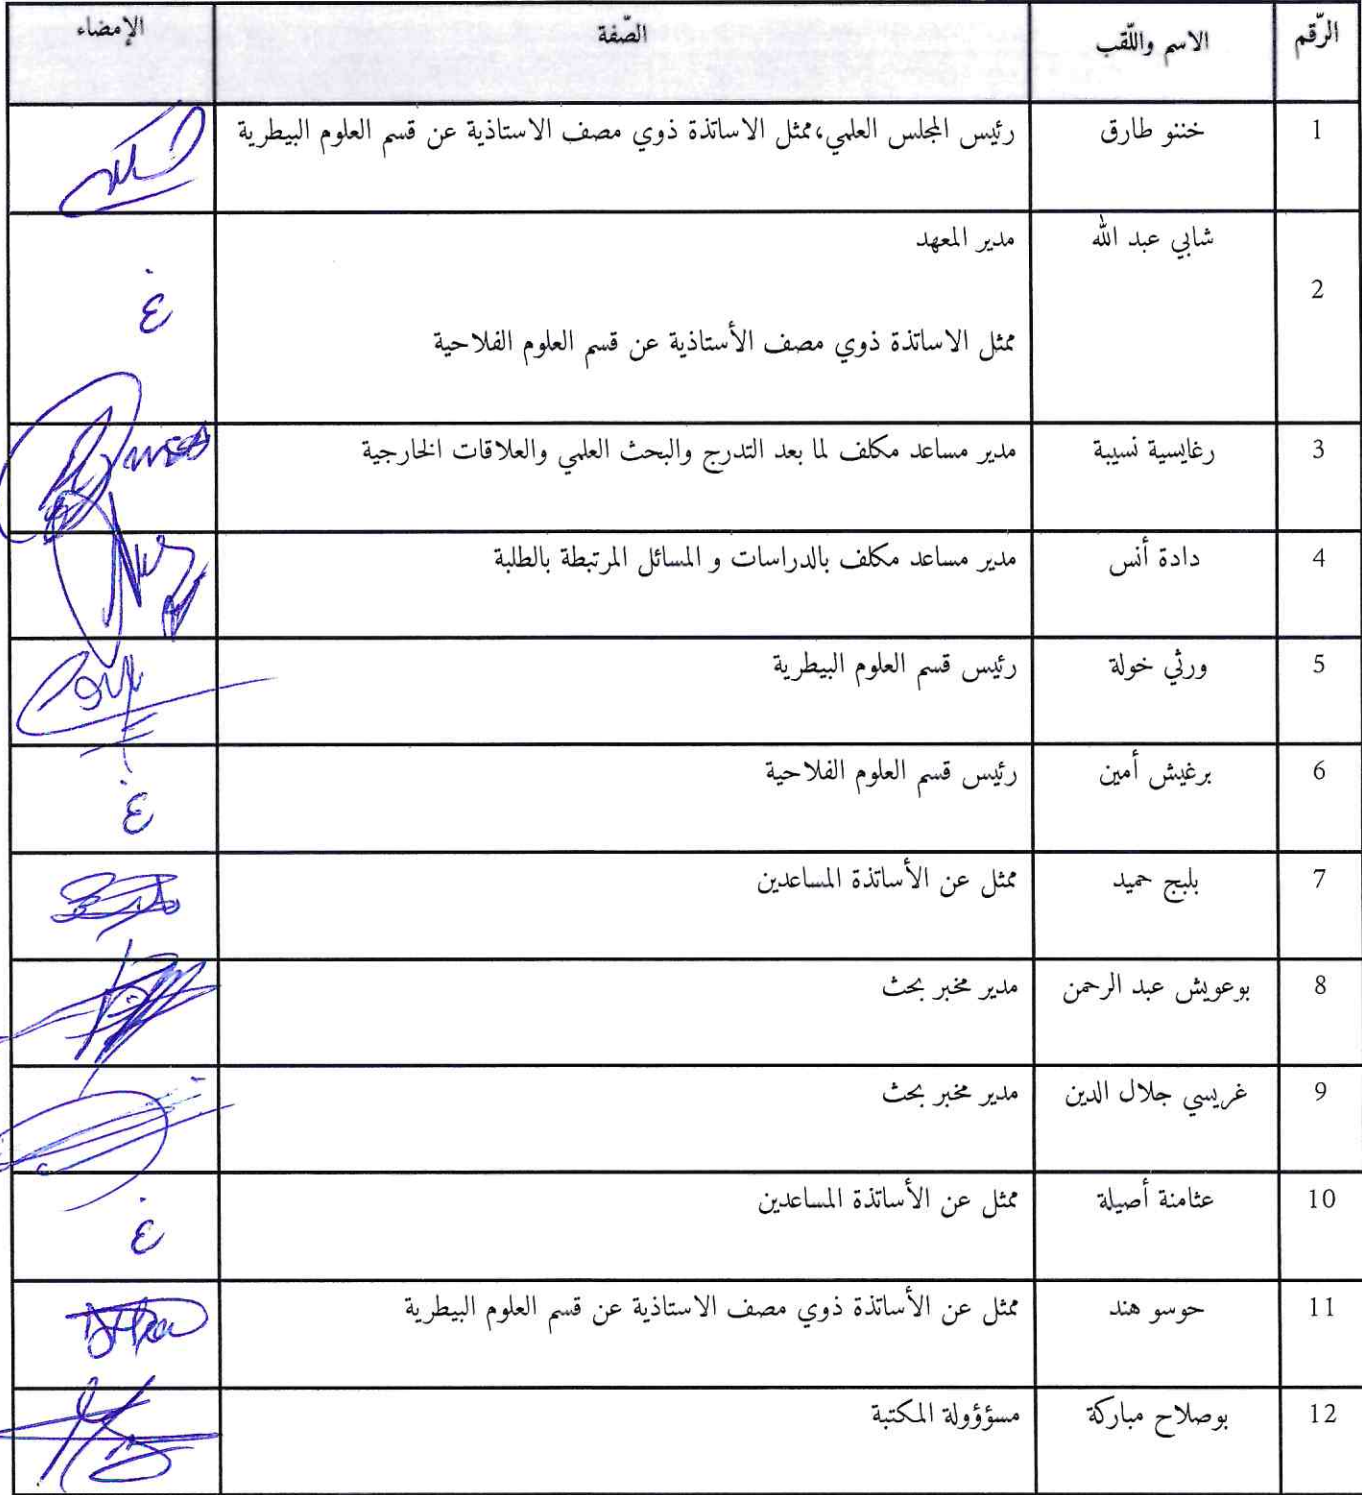 الرّقم الاسم واللّقب الصّفة الإمضاء
1 خننو طارق رئيس المجلس العلمي،ممثل الاساتذة ذوي مصف الاستاذية عن قسم العلوم البيطرية
شابي عبد الله مدير المعهد
2 غ
ممثل الاساتذة ذوي مصف الأستاذية عن قسم العلوم الفلاحية
3 رغايسية نسيبة مدير مساعد مكلف لما بعد التدرج والبحث العلمي والعلاقات الخارجية
4 دادة أنس مدير مساعد مكلف بالدراسات و المسائل المرتبطة بالطلبة
5 ورثي خولة رئيس قسم العلوم البيطرية
6 برغيش أمين رئيس قسم العلوم الفلاحية غ
7 بلبج حميد ممثل عن الأساتذة المساعدين
8 بوعويش عبد الرحمن مدير مخبر بحث
9 غريسي جلال الدين مدير مخبر بحث
10 عثامنة أصيلة ممثل عن الأساتذة المساعدين غ
11 حوسو هند ممثل عن الأساتذة ذوي مصف الاستاذية عن قسم العلوم البيطرية
12 بوصلاح مباركة مسؤؤولة المكتبة